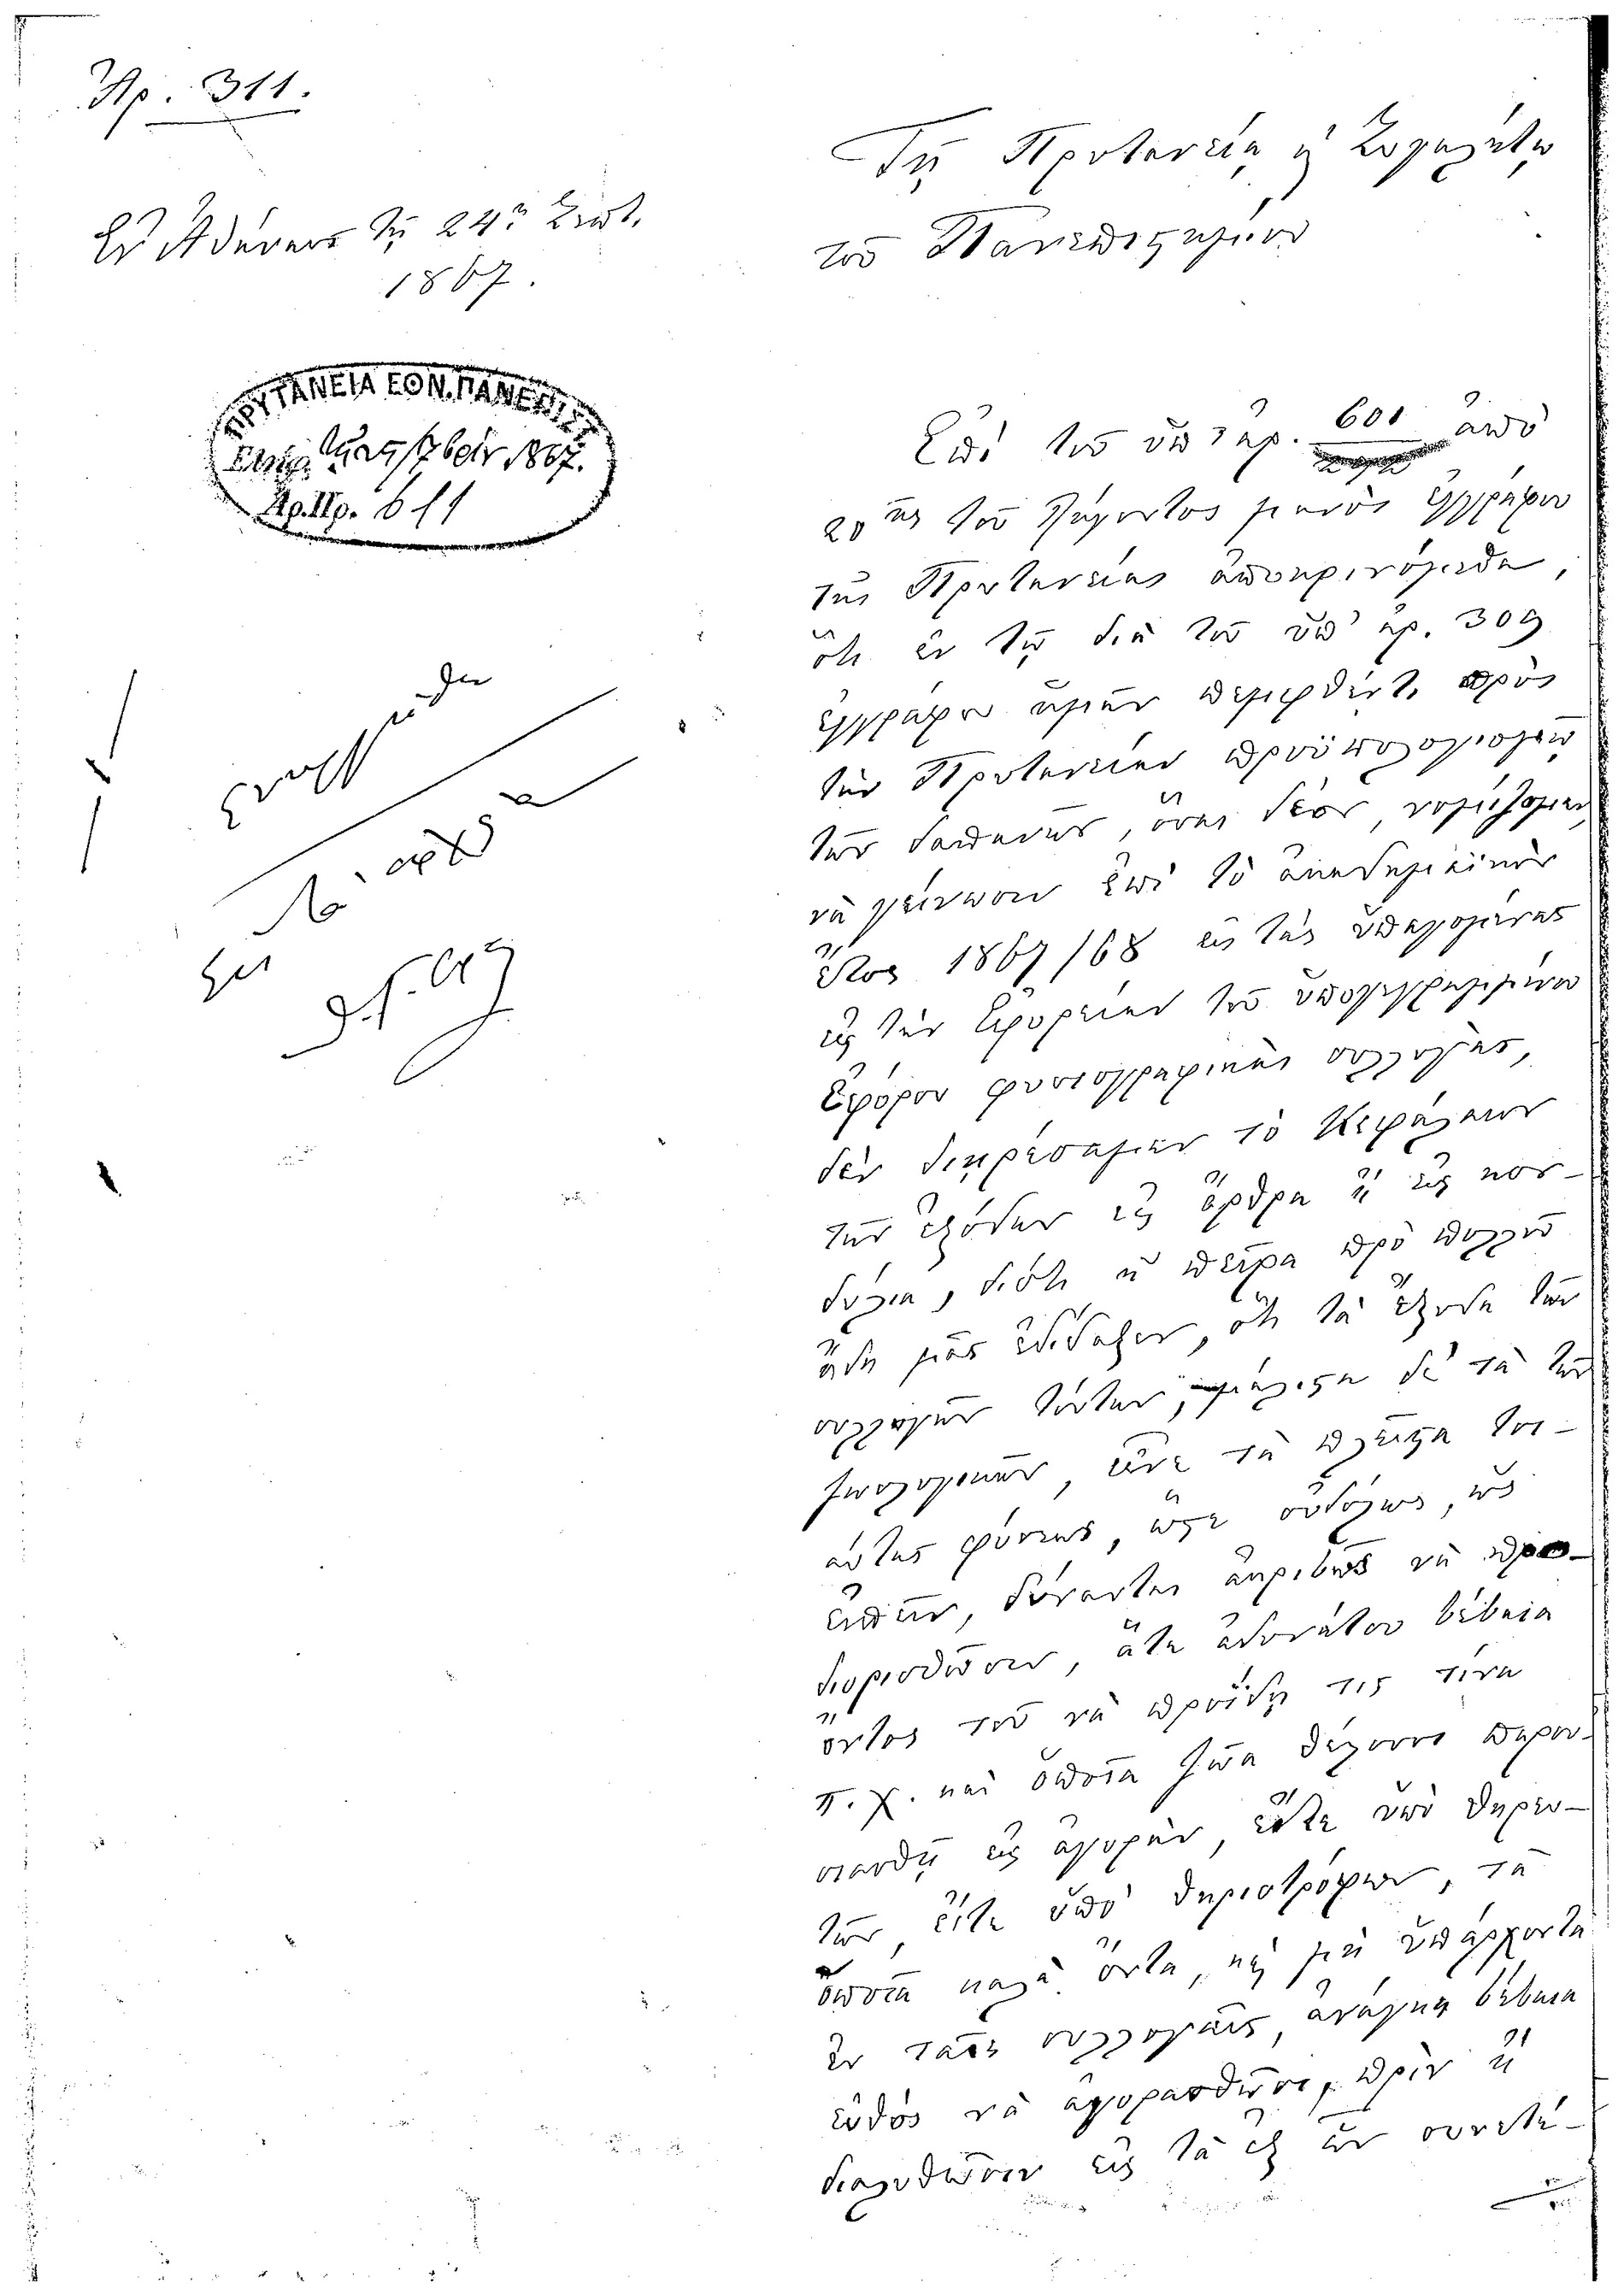 Ἀρ. 311.
Ἐν Ἀθήναις τῇ 24ῃ Σεπτ.
1867.
ΠΡΥΤΑΝΕΙΑ ΕΘΝ. ΠΑΝΕΠΙΣΤ.
7βρίου 1867.
Ἀρ. Πρ. 611
Τῇ Πρυτανείᾳ τοῦ
τοῦ Πανεπιστημίου
Ἐπὶ τοῦ ὑπ' ἀρ. 601 ἀπὸ
20ῆς τοῦ λήγοντος μηνὸς ἐγγράφου
τῆς Πρυτανείας ἀποκρινόμεθα,
ὅτι ἐν τῷ διὰ τοῦ ὑπ' ἀρ. 309
ἐγγράφου ἡμῶν πεμφθέντι πρὸς
τὴν Πρυτανείαν προϋπολογισμῷ
τῶν δαπανῶν, ὅσαι δέον, νομίζομεν,
νὰ γείνωσιν ἐπὶ τὸ ἀκαδημαϊκὸν
ἔτος 1867/68 εἰς τὰς ὑπαγομένας
εἰς τὴν Ἐφορείαν τοῦ ὑπογεγραμμένου
Ἐφόρου φυσιογραφικὰς συλλογάς,
δὲν διῃρέσαμεν τὸ Κεφάλαιον
τῶν ἐξόδων εἰς ἄρθρα ἢ εἰς κον-
δύλια, διότι ἡ πεῖρα πρὸ πολλοῦ
ἤδη μᾶς ἐδίδαξεν, ὅτι τὰ ἔξοδα τῶν
συλλογῶν τούτων, μάλιστα δὲ τὰ τῶν
ζωολογικῶν, εἶνε τὰ πλεῖστα τοι-
αύτης φύσεως, ὥστε οὐδόλως, ὡς
εἰπεῖν, δύνανται ἀκριβῶς νὰ προ-
διορισθῶσιν, ἅτε ἀδυνάτου βέβαια
ὄντος τοῦ νὰ προΐδῃ τις τίνα
π. χ. καὶ ὁποῖα ζῶα θέλουσι παρου-
σιασθῇ εἰς ἀγοράν, εἴτε ὑπὸ θηρευ-
τῶν, εἴτε ὑπὸ θηριοτρόφων, τὰ
ὁποῖα καλὰ ὄντα, καὶ μὴ ὑπάρχοντα
ἐν ταῖς συλλογαῖς, ἀνάγκη βέβαια
εὐθὺς νὰ ἀγορασθῶσι, πρὶν ἢ
διαλυθῶσιν εἰς τὰ ἐξ ὧν συνετέ-